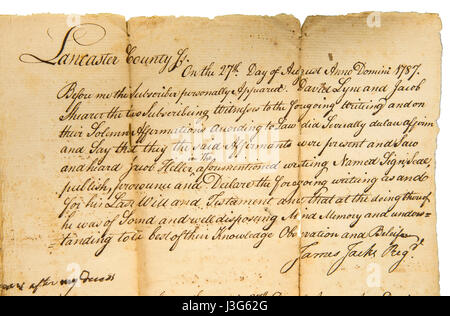 Lancaster County Ss.
On the 27th. Day of August Anno Domini 1787.
Before me the Subscriber personally Appeared David Lyne and Jacob
Shearer the two Subscribing Witnesses to the foregoing Writing and on
their Solemn Affirmations According to Law did Severally declare Affirm
and Say that they the said Affirmants were present and Saw
The
and heard Jacob Hiller aforementioned writing Named Sign, Seal,
publish, pronounce and Declare the foregoing writing as and
for his Last Will and Testament and that at the doing thereof
he was of Sound and well disposing Mind Memory and unders=
=tanding to the best of their Knowledge Observation and Belief
James Jacks Regr.
after my
alamy
Image ID: G3G62G
www.alamy.com